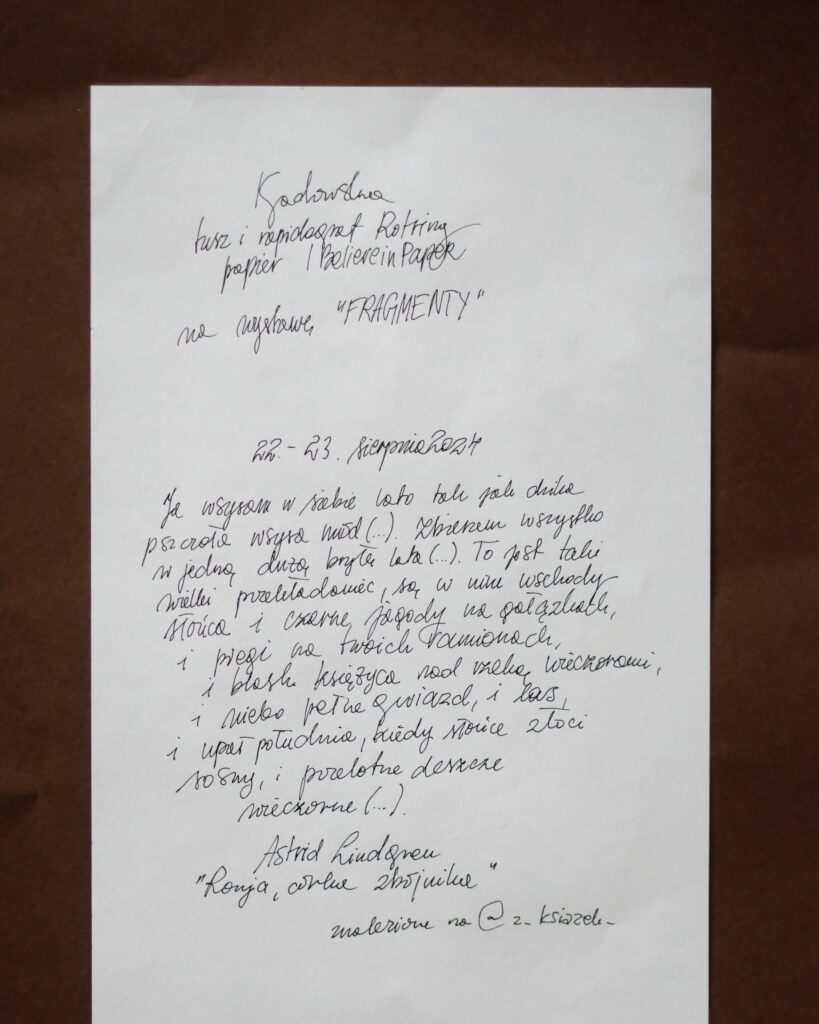 Kjadowska
tusz i rapidograf Rotring
papier I Believe in Paper
na wystawę "FRAGMENTY"
22. - 23. sierpnia 2024
Ja wsysam w siebie lato tak jak dzika
pszczoła wsysa miód (...). Zbieram wszystko
w jedną dużą bryłę lata (...). To jest taki
wielki przekładaniec, są w nim wschody
słońca i czarne jagody na gałązkach,
i piegi na twoich ramionach,
i blask księżyca nad rzeką wieczorami,
i niebo pełne gwiazd, i las,
i upał południa, kiedy słońce złoci
sosny, i przelotne deszcze
wieczorne (...).
Astrid Lindgren
"Ronja, córka zbójnika"
znalezione na @z_ksiazek_